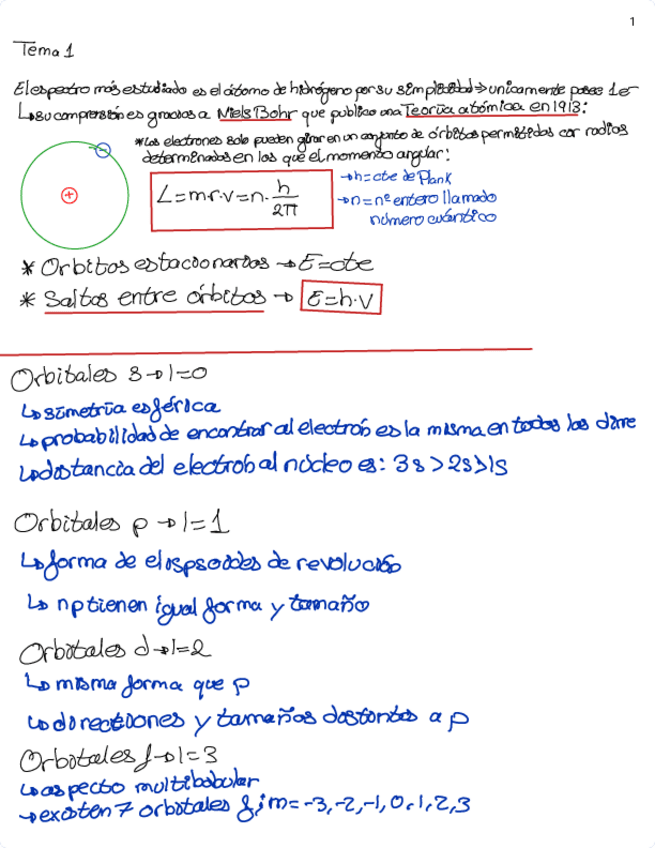 1
Tema 1
El espectro más estudiado es el átomo de hidrógeno por su simplicidad → unicamente posee 1e-
↳ su comprensión es gracias a Niels Bohr que publico una Teoría atómica en 1913:
* Los electrones solo pueden girar en un conjunto de órbitas permitidas cor radios
determinados en los que el momento angular:
L=mr.v=n.h/2π
→ h=cte de Plank
→ n=nº entero llamado
número cuántico
* Orbitas estacionarias → E=cte
* Saltos entre órbitas → E=h.ν
Orbitales s → l=0
↳ simetría esférica
↳ probabilidad de encontrar al electrón es la misma en todas las dire
↳ distancia del electrón al núcleo es: 3s>2s>1s
Orbitales p → l=1
↳ forma de elispsoides de revolución
↳ np tienen igual forma y tamaño
Orbitales d → l=2
↳ misma forma que p
↳ direcciones y tamaños distintos a p
Orbitales f → l=3
↳ aspecto multibobular
→ existen 7 orbitales f; m=-3,-2,-1,0,1,2,3